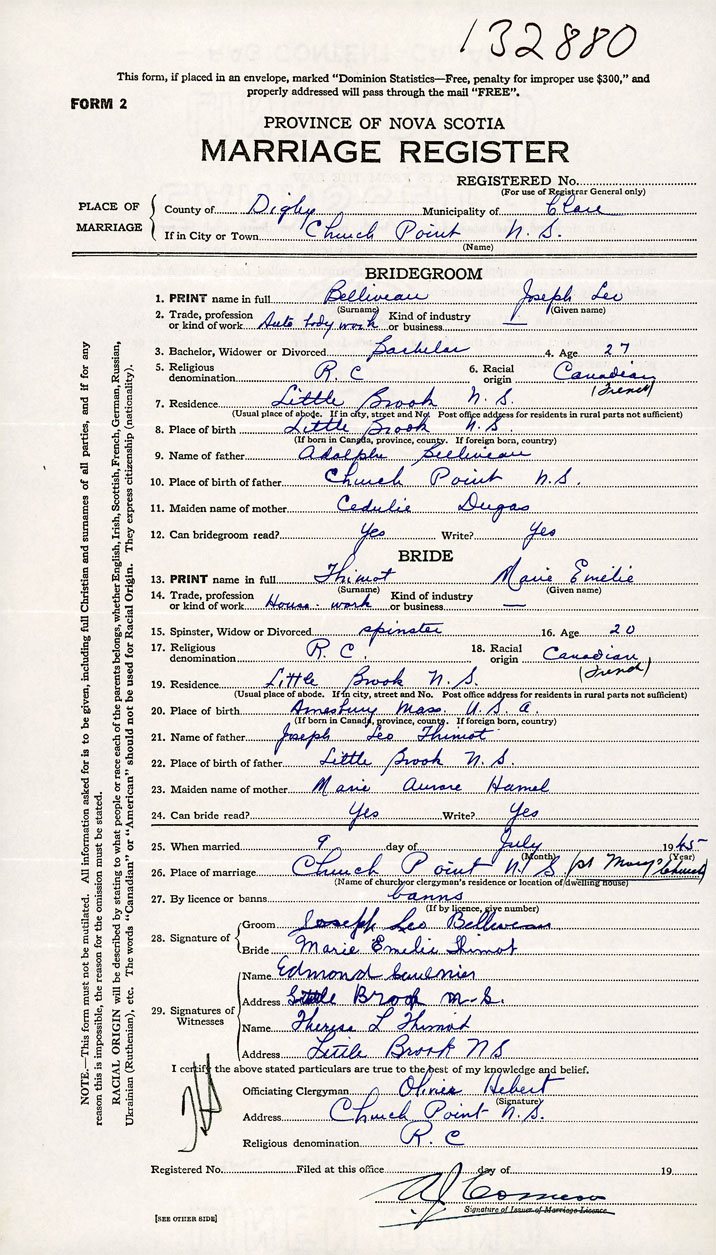 132880
This form, if placed in an envelope, marked "Dominion Statistics—Free, penalty for improper use $300," and
properly addressed will pass through the mail "FREE".
FORM 2
PROVINCE OF NOVA SCOTIA
MARRIAGE REGISTER
REGISTERED No.
(For use of Registrar General only)
PLACE OF MARRIAGE
County of Digby Municipality of Clare
If in City or Town Church Point N.S.
(Name)
BRIDEGROOM
1. PRINT name in full Belliveau Joseph Leo
(Surname) (Given name)
2. Trade, profession or kind of work Auto body work Kind of industry or business —
3. Bachelor, Widower or Divorced bachelor 4. Age 27
5. Religious denomination R.C 6. Racial origin Canadian (French)
7. Residence Little Brook N.S.
(Usual place of abode. If in city, street and No. Post office address for residents in rural parts not sufficient)
8. Place of birth Little Brook N.S.
(If born in Canada, province, county. If foreign born, country)
9. Name of father Adolphe Belliveau
10. Place of birth of father Church Point N.S.
11. Maiden name of mother Cedulie Dugas
12. Can bridegroom read? Yes Write? Yes
BRIDE
13. PRINT name in full Thimot Marie Emelie
(Surname) (Given name)
14. Trade, profession or kind of work House-work Kind of industry or business —
15. Spinster, Widow or Divorced spinster 16. Age 20
17. Religious denomination R.C. 18. Racial origin Canadian (French)
19. Residence Little Brook N.S.
(Usual place of abode. If in city, street and No. Post office address for residents in rural parts not sufficient)
20. Place of birth Amesbury Mass. U.S.A.
(If born in Canada, province, county. If foreign born, country)
21. Name of father Joseph Leo Thimot
22. Place of birth of father Little Brook N.S.
23. Maiden name of mother Marie Aurore Hamel
24. Can bride read? Yes Write? Yes
25. When married 9 day of July 1945
(Month) (Year)
26. Place of marriage Church Point N.S (St Mary's Church)
(Name of church or clergyman's residence or location of dwelling house)
27. By licence or banns banns
(If by licence, give number)
28. Signature of
Groom Joseph Leo Belliveau
Bride Marie Emelie Thimot
29. Signatures of Witnesses
Name Edmond Saulnier
Address Little Brook N.S.
Name Therese L Thimot
Address Little Brook NS
I certify the above stated particulars are true to the best of my knowledge and belief.
Officiating Clergyman Olivier Hebert
(Signature)
Address Church Point N.S.
Religious denomination R.C
Registered No. Filed at this office day of 19
A J Comeau
Signature of Issuer of Marriage Licence
[SEE OTHER SIDE]
NOTE.—This form must not be mutilated. All information asked for is to be given, including full Christian and surnames of all parties, and if for any
reason this is impossible, the reason for the omission must be stated.
RACIAL ORIGIN will be described by stating to what people or race each of the parents belongs, whether English, Irish, Scottish, French, German, Russian,
Ukrainian (Ruthenian), etc. The words "Canadian" or "American" should not be used for Racial Origin. They express citizenship (nationality).